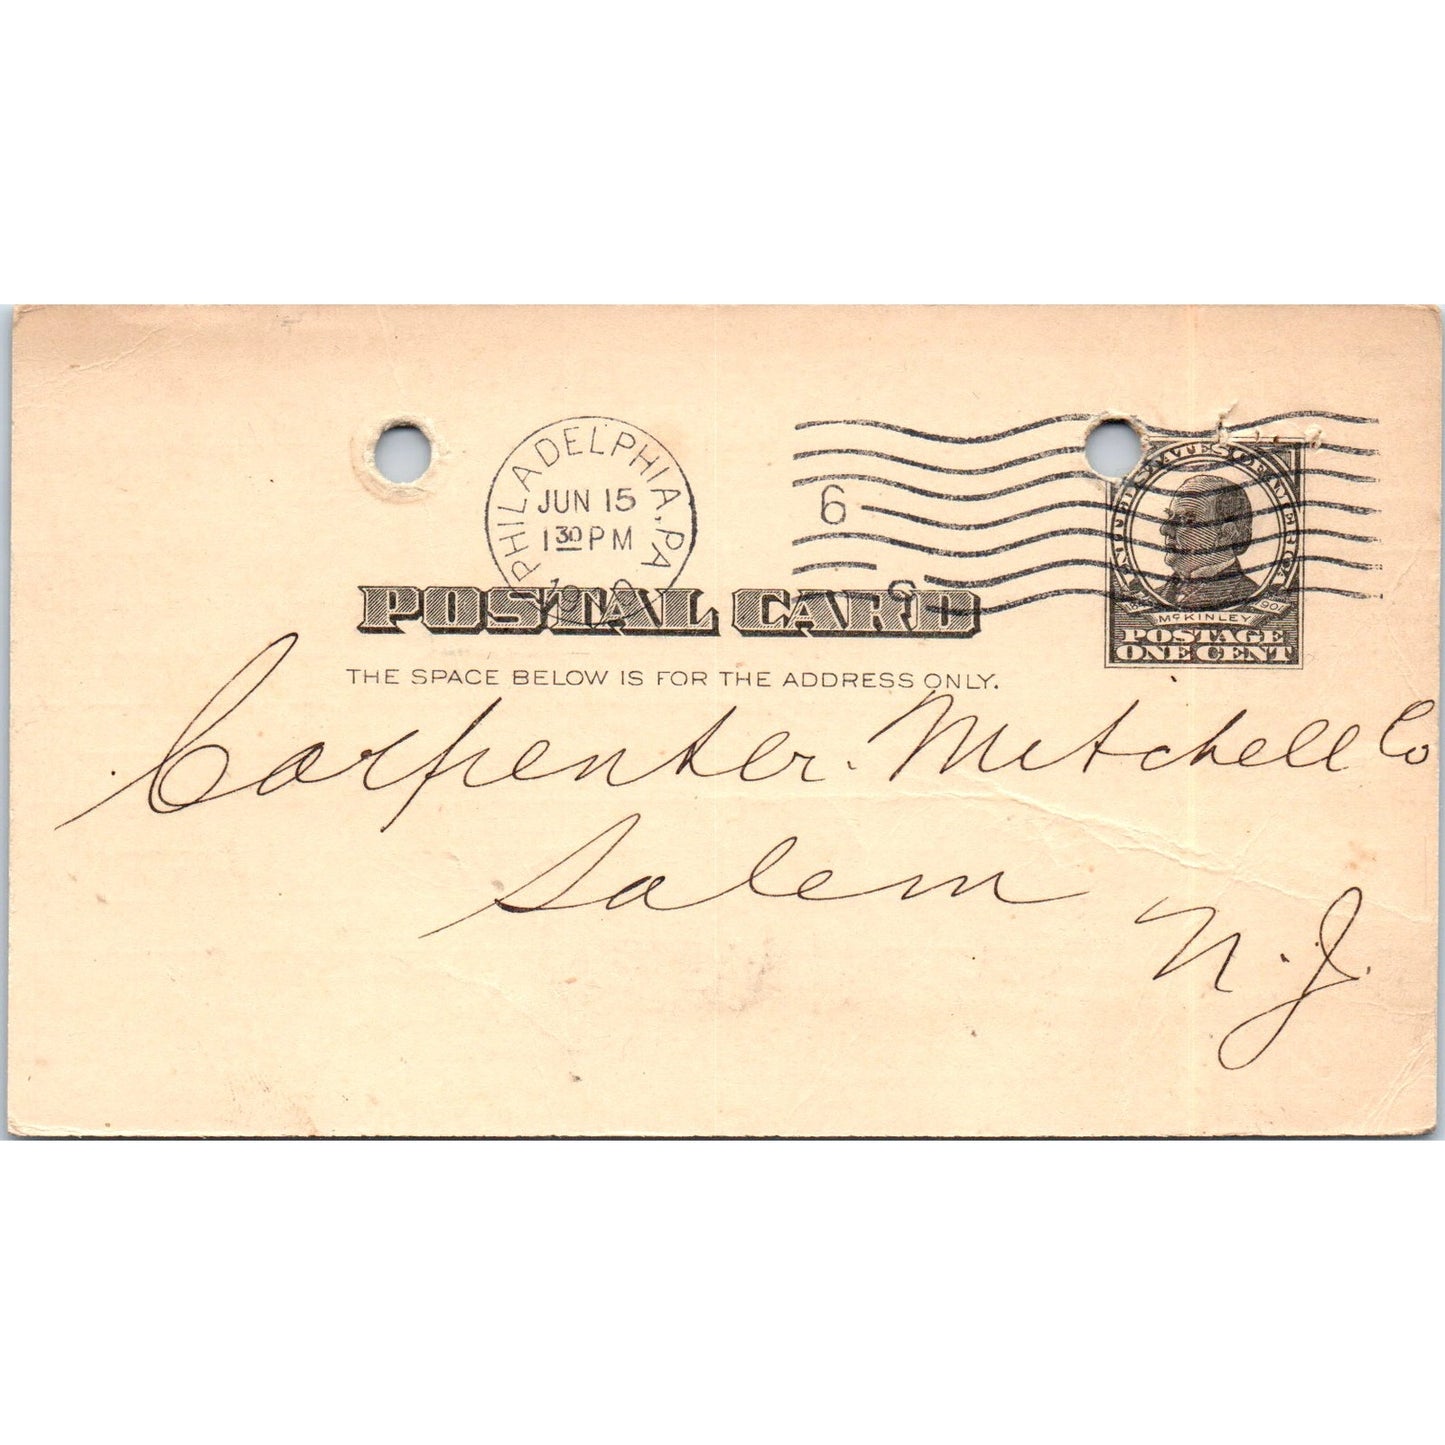 PHILADELPHIA, PA.
JUN 15
1 30 PM
6
UNITED STATES OF AMERICA
1901
McKINLEY
POSTAGE
ONE CENT
POSTAL CARD
THE SPACE BELOW IS FOR THE ADDRESS ONLY.
Carpenter. Mitchell Co
Salem
N. J.